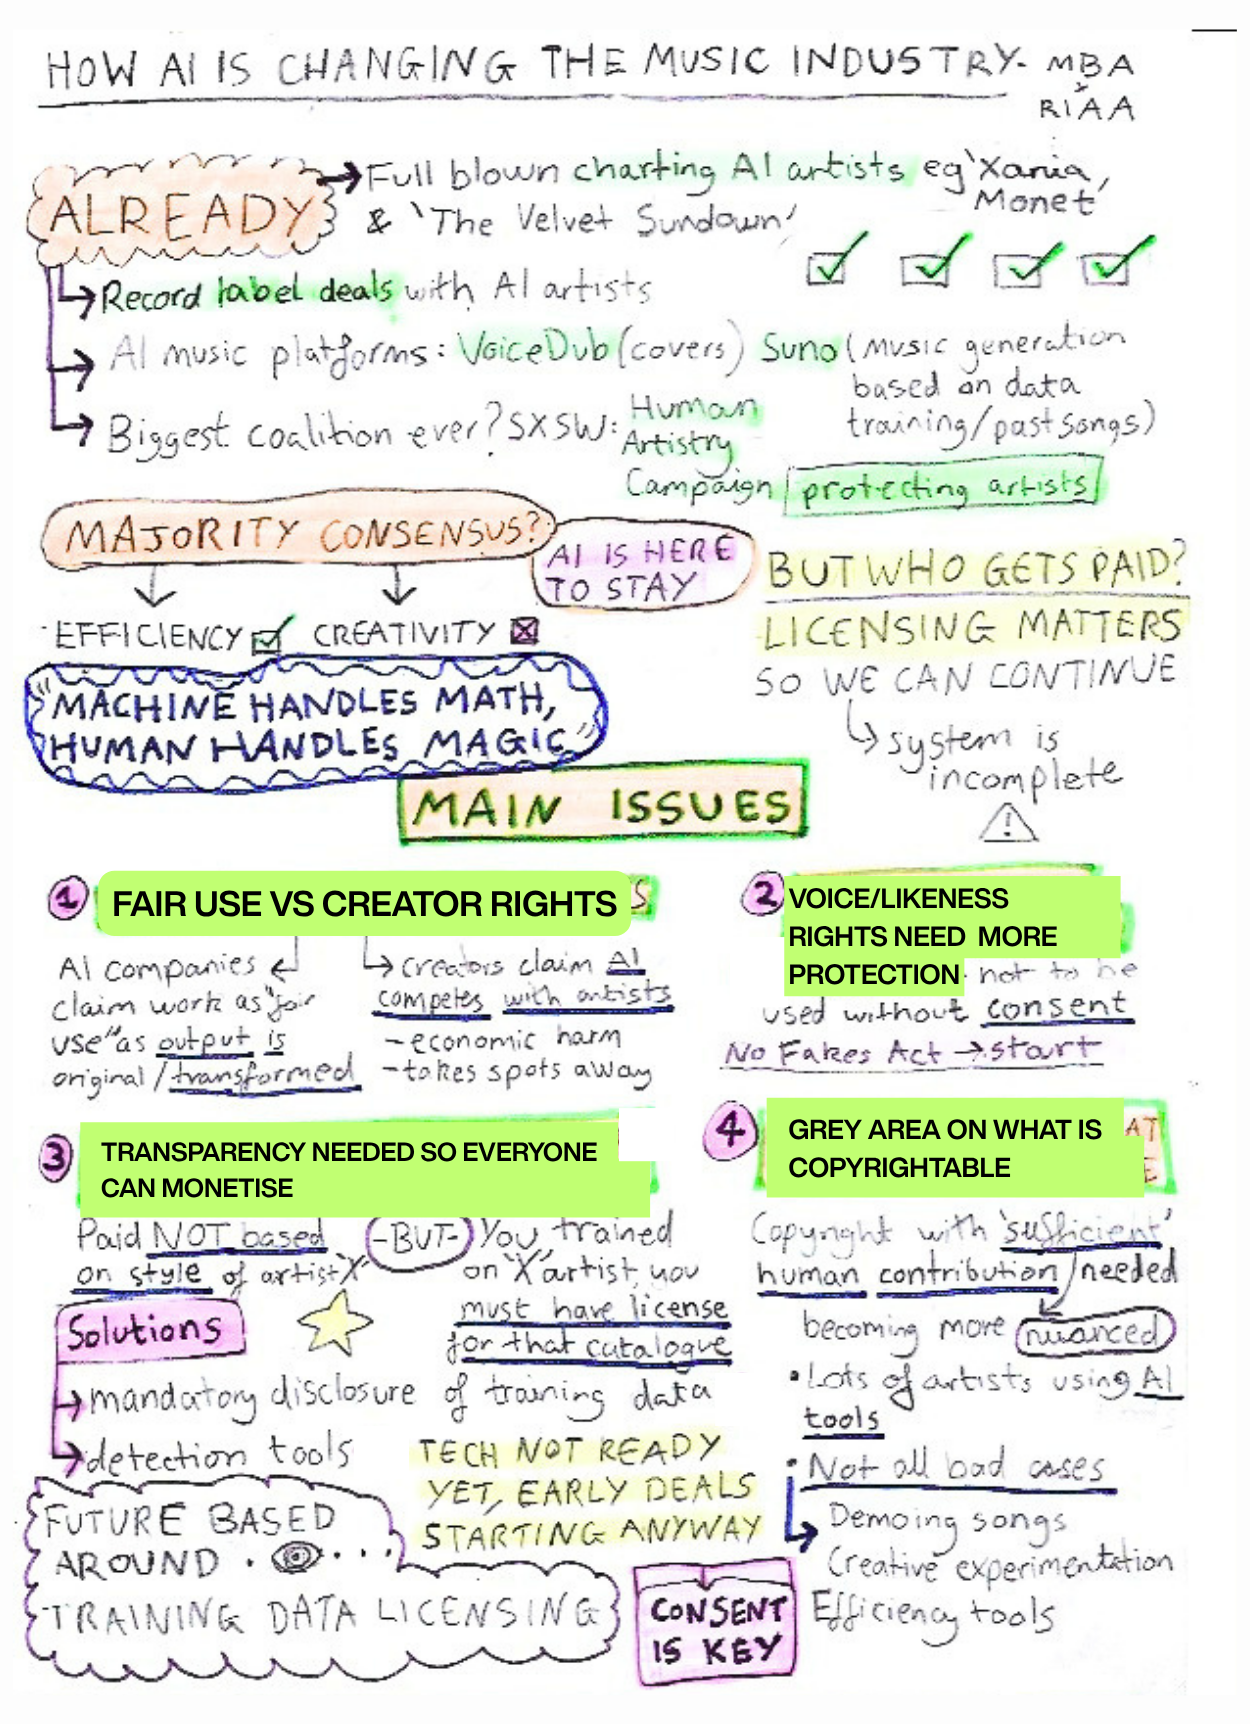 HOW AI IS CHANGING THE MUSIC INDUSTRY- MBA
RIAA
ALREADY
Full blown charting AI artists eg 'Xania,
Monet'
& 'The Velvet Sundown'
Record label deals with AI artists
AI music platforms: VoiceDub (covers) Suno (music generation
based on data
training/past songs)
Biggest coalition ever? SXSW: Human
Artistry
Campaign protecting artists
MAJORITY CONSENSUS?
AI IS HERE
TO STAY
EFFICIENCY CREATIVITY
"MACHINE HANDLES MATH,
HUMAN HANDLES MAGIC"
BUT WHO GETS PAID?
LICENSING MATTERS
SO WE CAN CONTINUE
system is
incomplete
!
MAIN ISSUES
1 FAIR USE VS CREATOR RIGHTS
AI companies
claim work as "fair
use" as output is
original/transformed
creators claim AI
competes with artists
- economic harm
- takes spots away
2 VOICE/LIKENESS
RIGHTS NEED MORE
PROTECTION not to be
used without consent
No Fakes Act → start
3 TRANSPARENCY NEEDED SO EVERYONE
CAN MONETISE
Paid NOT based
on style of artist 'X'
-BUT-
You trained
on 'X' artist, you
must have license
for that catalogue
Solutions
mandatory disclosure of training data
detection tools
TECH NOT READY
YET, EARLY DEALS
STARTING ANYWAY
FUTURE BASED
AROUND . . . .
TRAINING DATA LICENSING
CONSENT
IS KEY
4 GREY AREA ON WHAT IS
COPYRIGHTABLE
Copyright with 'sufficient'
human contribution/needed
becoming more nuanced
• Lots of artists using AI
tools
• Not all bad cases
Demoing songs
Creative experimentation
Efficiency tools